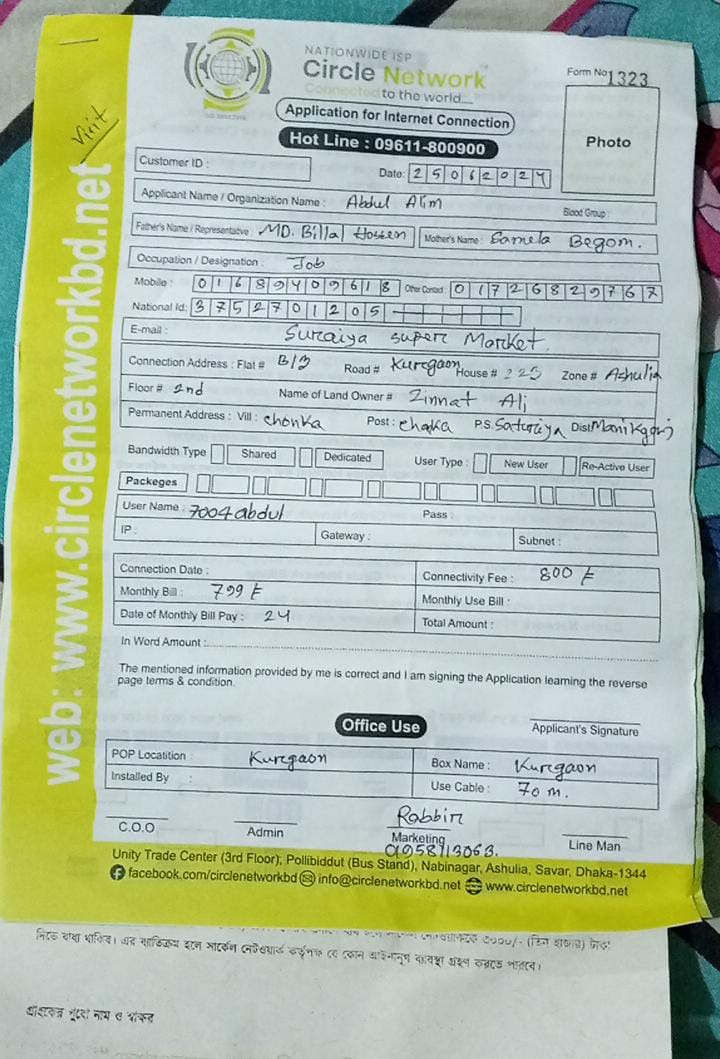 NATIONWIDE ISP
Circle Network
Connected to the world...
Form No 1323
Application for Internet Connection
Hot Line : 09611-800900
Photo
Visit
web: www.circlenetworkbd.net
Customer ID :
Date: 25062024
Applicant Name / Organization Name : Abdul Alim Blood Group :
Father's Name / Representative MD. Billal Hossen Mother's Name : Samela Begom.
Occupation / Designation : Job
Mobile : 01689409618 Other Contact : 01726829767
National Id: 3752701205
E-mail : Suraiya super Market.
Connection Address : Flat # B/3 Road # Kurgaon House # 225 Zone # Ashulia
Floor # 2nd Name of Land Owner # Zinnat Ali
Permanent Address : Vill : chonka Post : chaka P.S. Saturiya Dist Manikgonj
Bandwidth Type Shared Dedicated User Type : New User Re-Active User
Packeges
User Name : 7004abdul Pass :
IP : Gateway : Subnet :
Connection Date : Connectivity Fee : 800 ৳
Monthly Bill : 799 ৳ Monthly Use Bill :
Date of Monthly Bill Pay : 24 Total Amount :
In Word Amount :
The mentioned information provided by me is correct and I am signing the Application learning the reverse
page terms & condition.
Office Use
Applicant's Signature
POP Locatition : Kurgaon Box Name : Kurgaon
Installed By : Use Cable : 70 m.
Rabbin
C.O.O Admin Marketing Line Man
01958113063.
Unity Trade Center (3rd Floor), Pollibiddut (Bus Stand), Nabinagar, Ashulia, Savar, Dhaka-1344
facebook.com/circlenetworkbd info@circlenetworkbd.net www.circlenetworkbd.net
৩০০০/- (তিন হাজার) টাকা
দিতে বাধ্য থাকিব। এর ব্যতিক্রম হলে সার্কেল নেটওয়ার্ক কর্তৃপক্ষ যে কোন আইনানুগ ব্যবস্থা গ্রহণ করতে পারবে।
গ্রাহকের পুরো নাম ও স্বাক্ষর